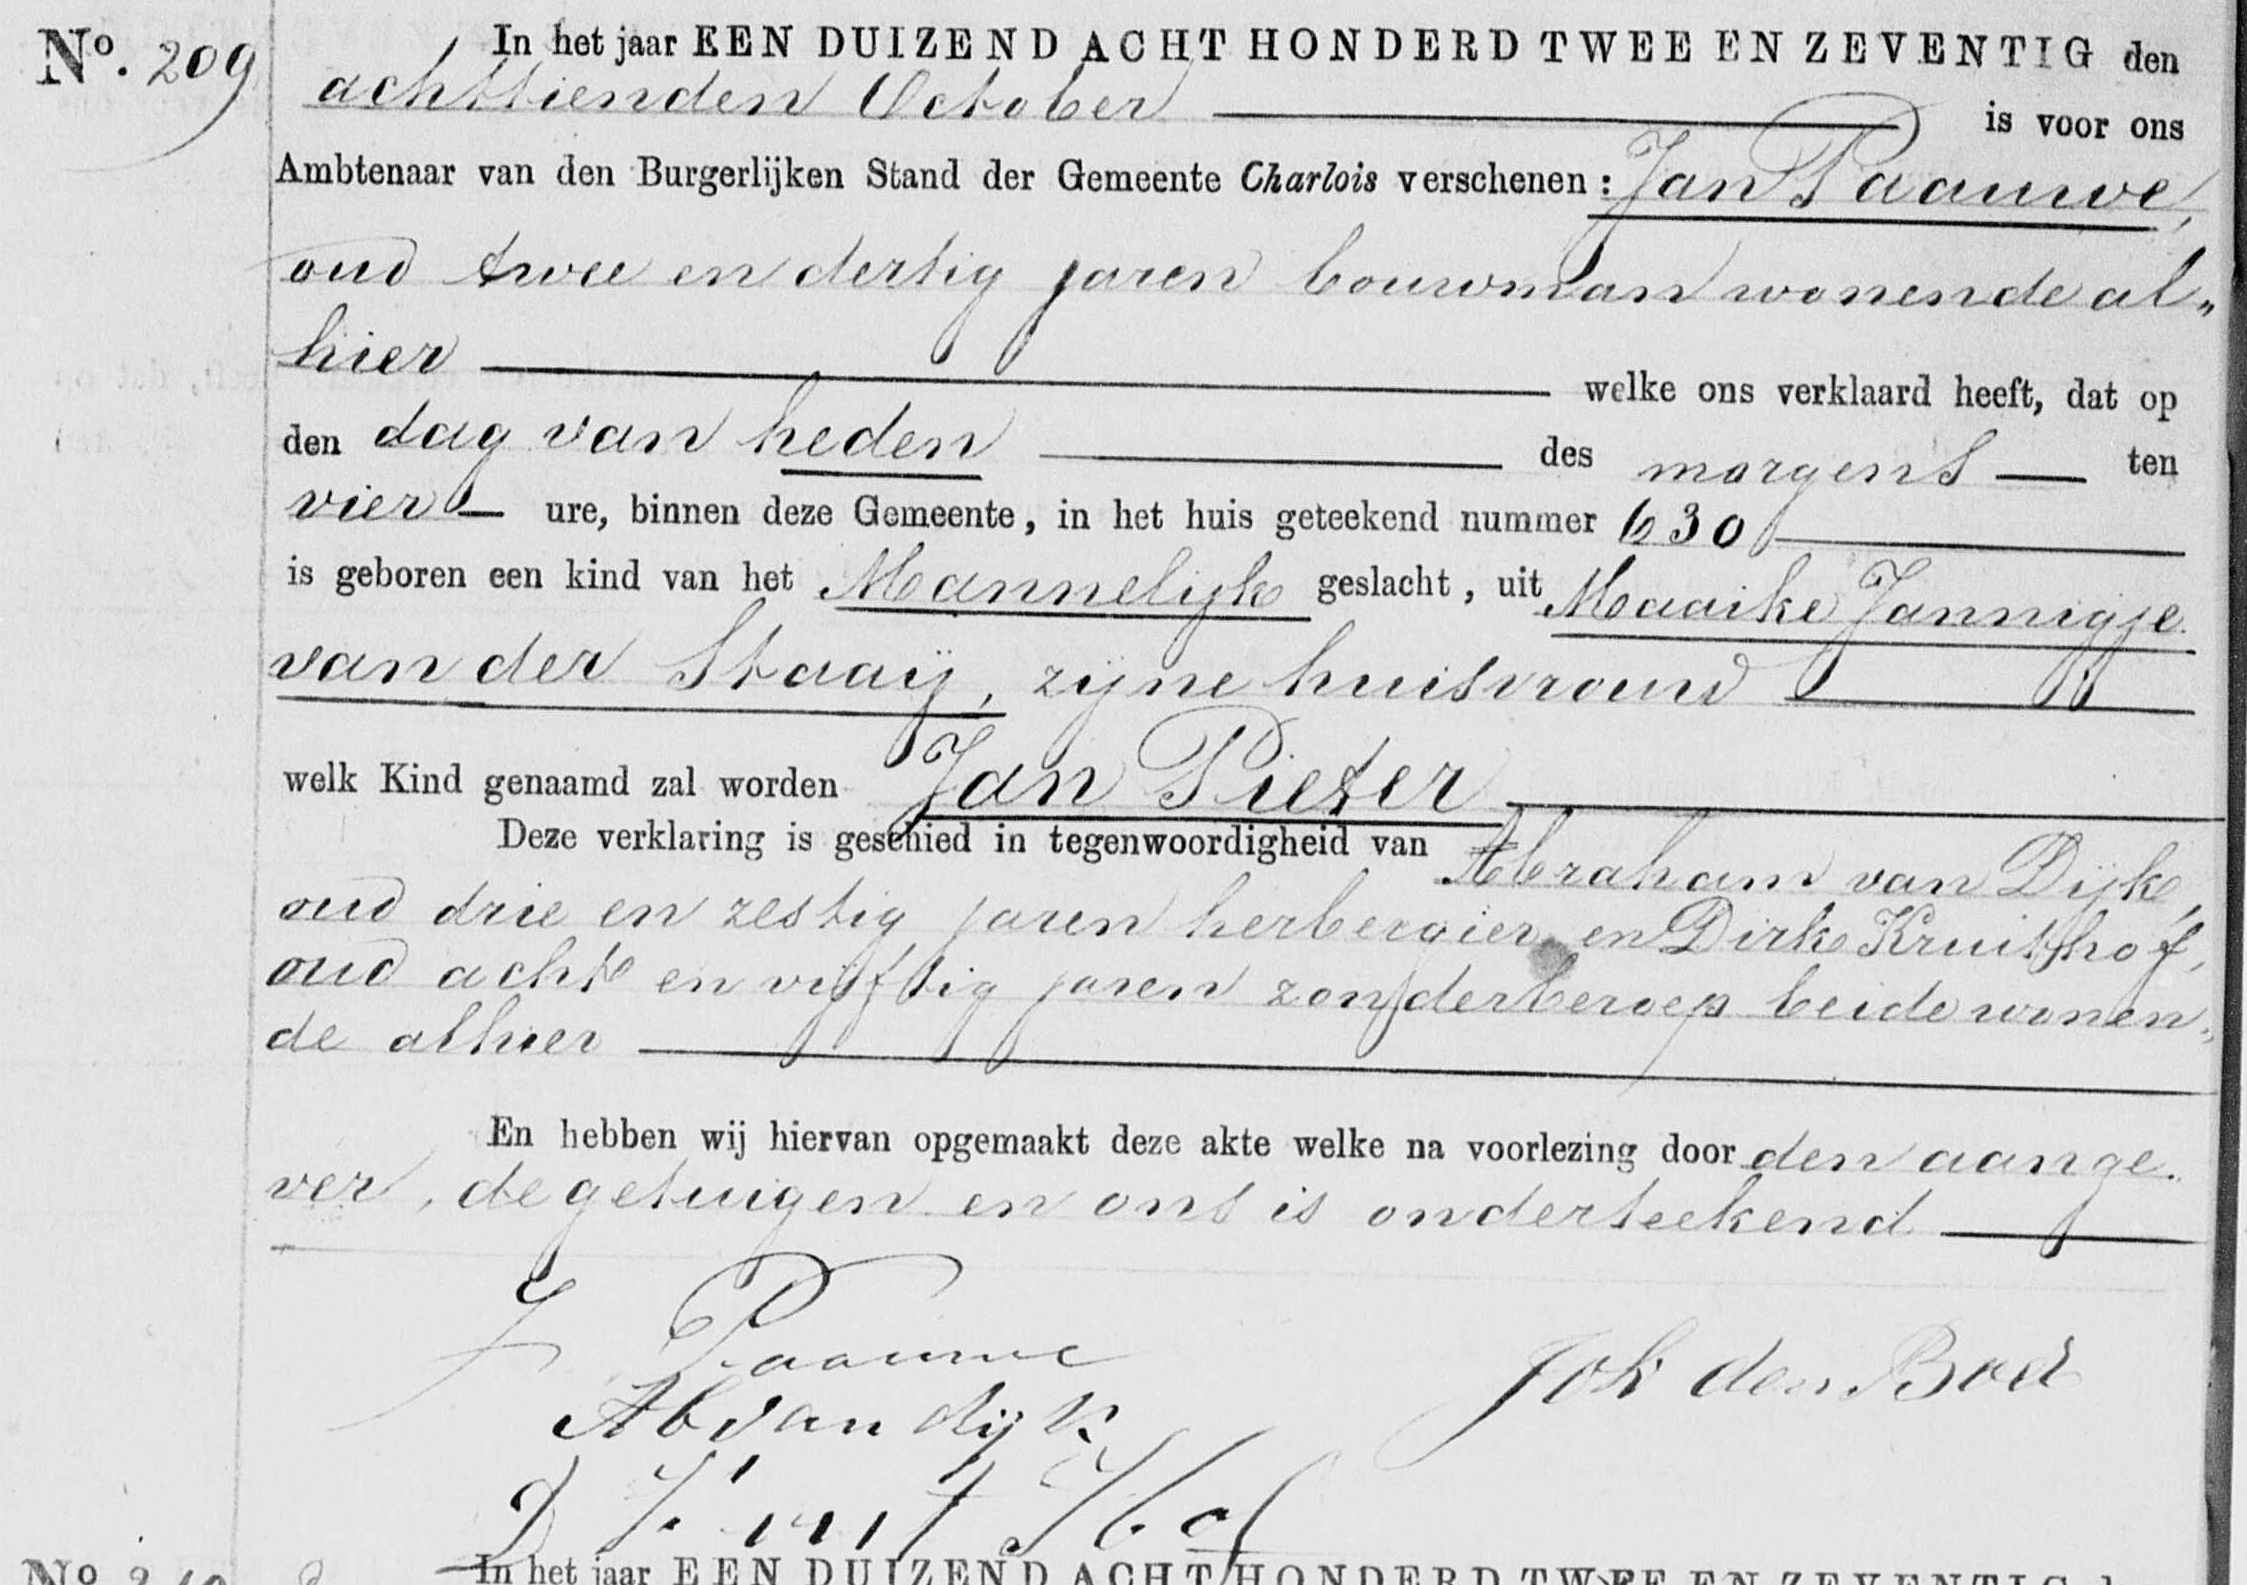 No. 209
In het jaar EEN DUIZEND ACHT HONDERD TWEE EN ZEVENTIG den
achttienden October is voor ons
Ambtenaar van den Burgerlijken Stand der Gemeente Charlois verschenen: Jan Paauwe,
oud twee en dertig jaren bouwman wonende al„
hier welke ons verklaard heeft, dat op
den dag van heden des morgens ten
vier ure, binnen deze Gemeente, in het huis geteekend nummer 630
is geboren een kind van het Mannelijk geslacht, uit Maaike Jannigje
van der Staaij, zijne huisvrouw
welk Kind genaamd zal worden Jan Pieter
Deze verklaring is geschied in tegenwoordigheid van Abraham van Dijk,
oud drie en zestig jaren herbergier en Dirk Kruithof,
oud acht en vijftig jaren zonder beroep beide wonen„
de alhier
En hebben wij hiervan opgemaakt deze akte welke na voorlezing door den aange„
ver, de getuigen en ons is onderteekend
J Paauwe
Joh den Boer
Ab van dijk
D Kruit Hof
No. 210
In het jaar EEN DUIZEND ACHT HONDERD TWEE EN ZEVENTIG d